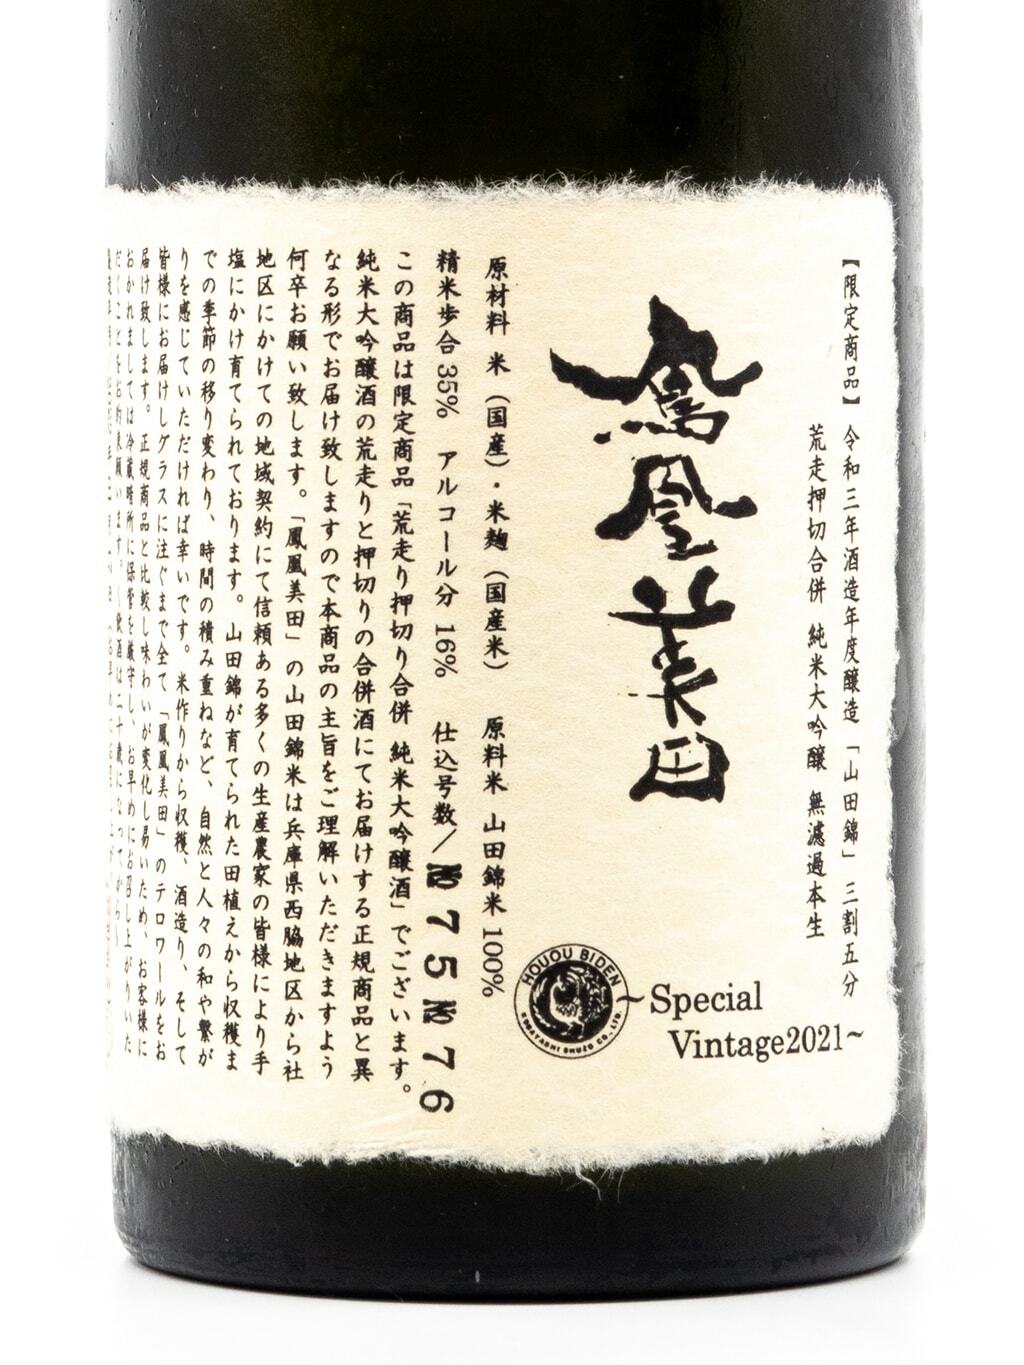 【限定商品】 令和三年酒造年度醸造 「山田錦」 三割五分
荒走押切合併 純米大吟醸 無濾過本生
鳳凰美田
~Special
Vintage2021~
HOUOU BIDEN
KOBAYASHI SHUZO CO.,LTD.
原材料 米 (国産)・米麹 (国産米) 原料米 山田錦米 100%
精米歩合 35% アルコール分 16% 仕込号数/ №75 №76
この商品は限定商品「荒走り押切り合併 純米大吟醸酒」でございます。
純米大吟醸酒の荒走りと押切りの合併酒にてお届けする正規商品と異
なる形でお届け致しますので本商品の主旨をご理解いただきますよう
何卒お願い致します。「鳳凰美田」の山田錦米は兵庫県西脇地区から社
地区にかけての地域契約にて信頼ある多くの生産農家の皆様により手
塩にかけ育てられております。山田錦が育てられた田植えから収穫ま
での季節の移り変わり、時間の積み重ねなど、自然と人々の和や繋が
りを感じていただければ幸いです。米作りから収穫、酒造り、そして
皆様にお届けしグラスに注ぐまで全て「鳳凰美田」のテロワールをお
届け致します。正規商品と比較し味わいが変化し易いため、お客様に
おかれましては冷蔵暗所に保管を厳守し、お早めにお召し上がりいた
だくことをお約束願います。飲酒は二十歳になってから